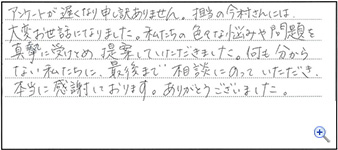 アンケートが遅くなり申し訳ありません。担当の今村さんには、
大変お世話になりました。私たちの色々な悩みや問題を
真摯に受けとめ、提案していただきました。何も分から
ない私たちに、最後まで相談にのっていただき、
本当に感謝しております。ありがとうございました。